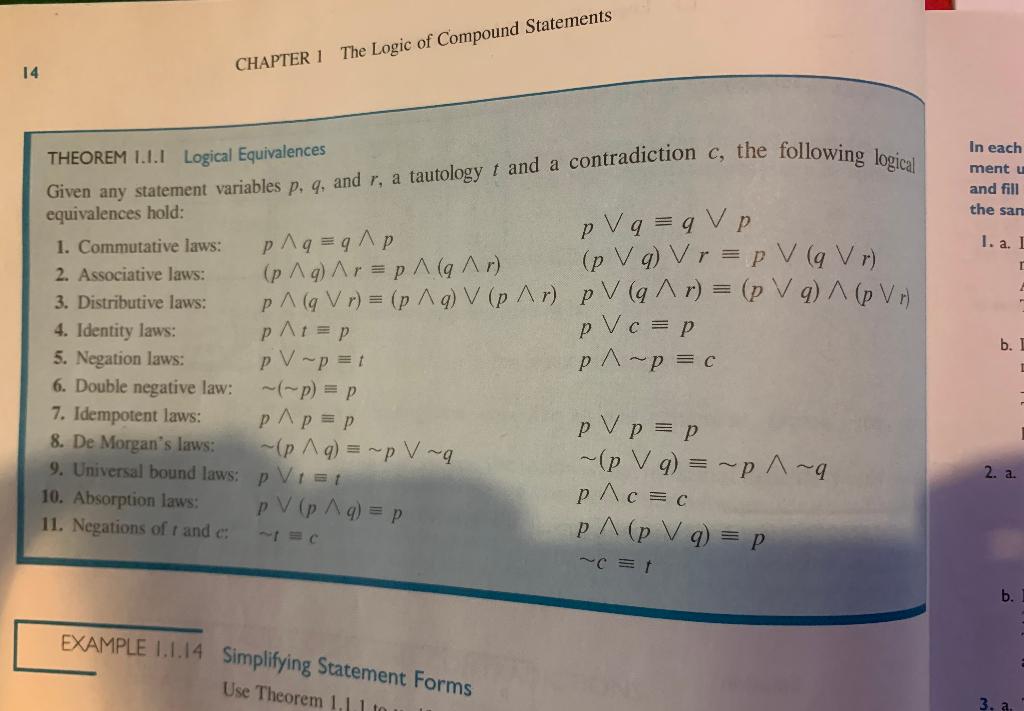 14
CHAPTER 1 The Logic of Compound Statements
THEOREM 1.1.1 Logical Equivalences
Given any statement variables p, q, and r, a tautology t and a contradiction c, the following logical
equivalences hold:
1. Commutative laws: p ∧ q ≡ q ∧ p p ∨ q ≡ q ∨ p
2. Associative laws: (p ∧ q) ∧ r ≡ p ∧ (q ∧ r) (p ∨ q) ∨ r ≡ p ∨ (q ∨ r)
3. Distributive laws: p ∧ (q ∨ r) ≡ (p ∧ q) ∨ (p ∧ r) p ∨ (q ∧ r) ≡ (p ∨ q) ∧ (p ∨ r)
4. Identity laws: p ∧ t ≡ p p ∨ c ≡ p
5. Negation laws: p ∨ ~p ≡ t p ∧ ~p ≡ c
6. Double negative law: ~(~p) ≡ p
7. Idempotent laws: p ∧ p ≡ p p ∨ p ≡ p
8. De Morgan's laws: ~(p ∧ q) ≡ ~p ∨ ~q ~(p ∨ q) ≡ ~p ∧ ~q
9. Universal bound laws: p ∨ t ≡ t p ∧ c ≡ c
10. Absorption laws: p ∨ (p ∧ q) ≡ p p ∧ (p ∨ q) ≡ p
11. Negations of t and c: ~t ≡ c ~c ≡ t
EXAMPLE 1.1.14 Simplifying Statement Forms
Use Theorem 1.1.1 to
In each
ment u
and fill
the san
1. a.
b.
2. a.
b.
3. a.